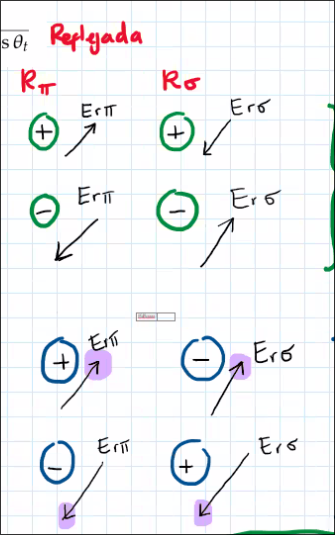 s θt Reflejada
Rπ Rσ
Erπ Erσ
+ +
Erπ Erσ
- -
Erπ Erσ
+ -
Erπ Erσ
- +